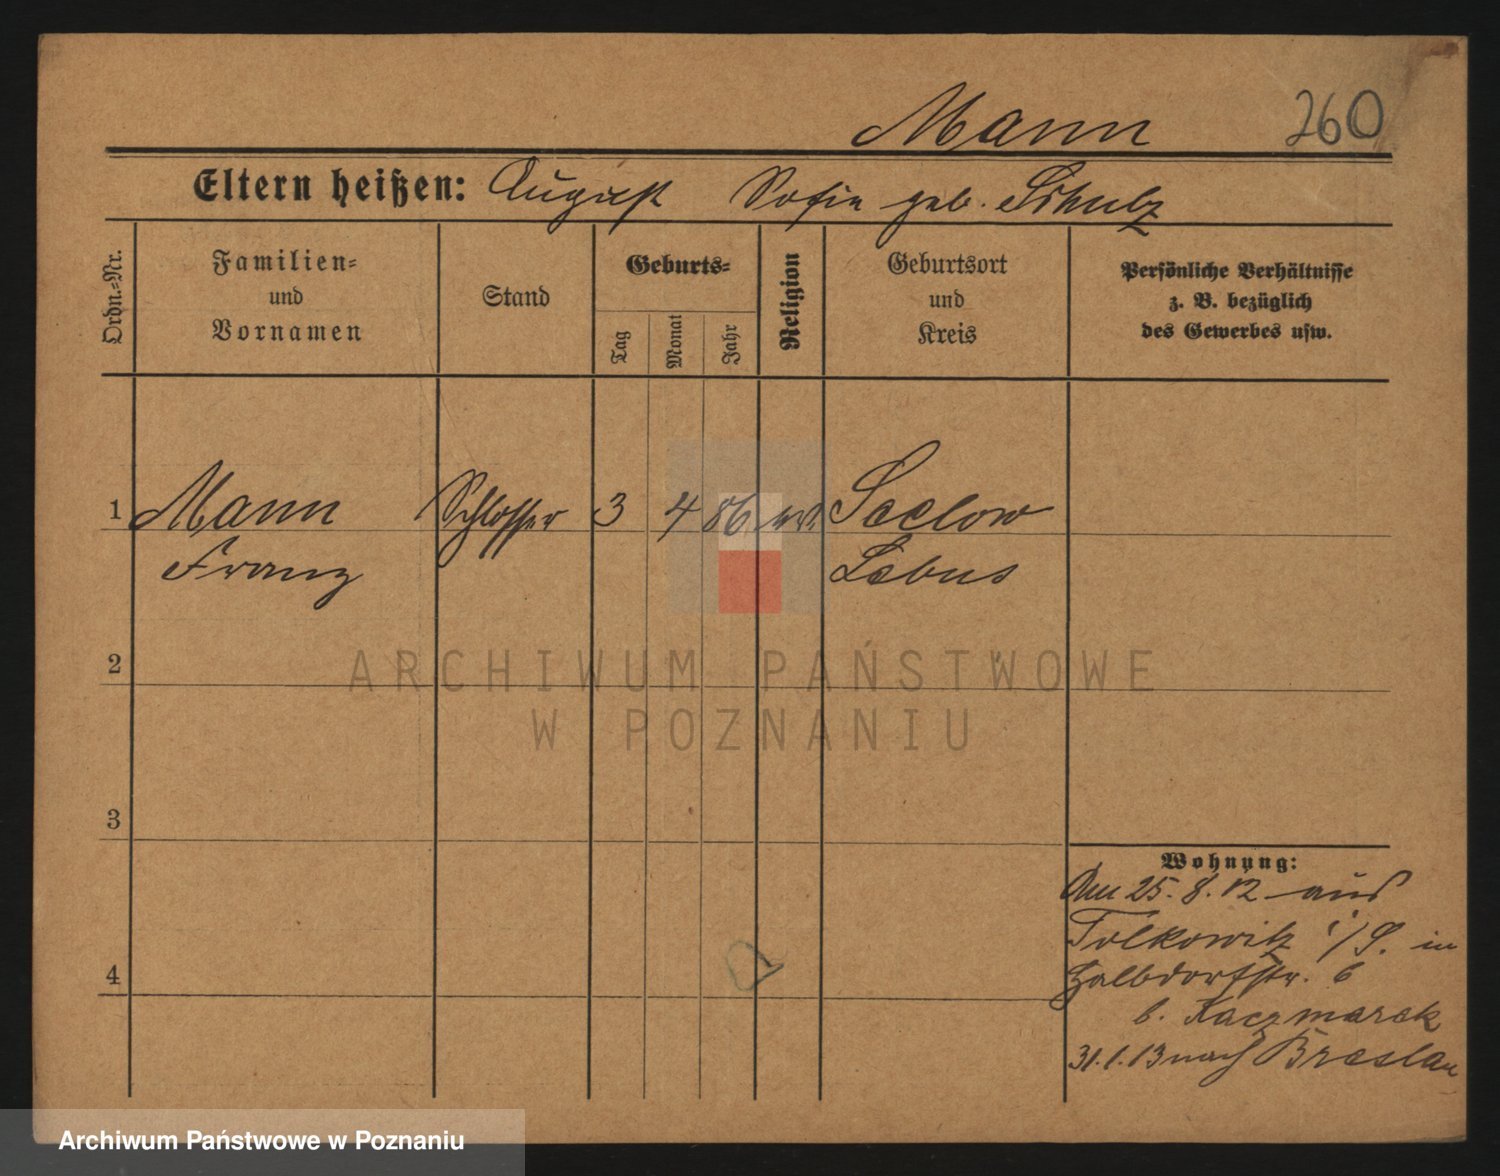 Mann 260
Eltern heißen: August Sofie geb. Schulz
Ordn.=Nr.
Familien=
und
Vornamen
Stand
Geburts=
Tag
Monat
Jahr
Religion
Geburtsort
und
Kreis
Persönliche Verhältnisse
z. B. bezüglich
des Gewerbes usw.
1 Mann Schlosser 3 4 86 Seelow
Franz Lebus
2
ARCHIWUM PAŃSTWOWE
W POZNANIU
3
Wohnung:
Am 25. 8. 12 aus
Tolkowitz i/S. in
Halbdorfstr. 6
b. Kaczmarek
4
31.1.13 nach Breslau
Archiwum Państwowe w Poznaniu